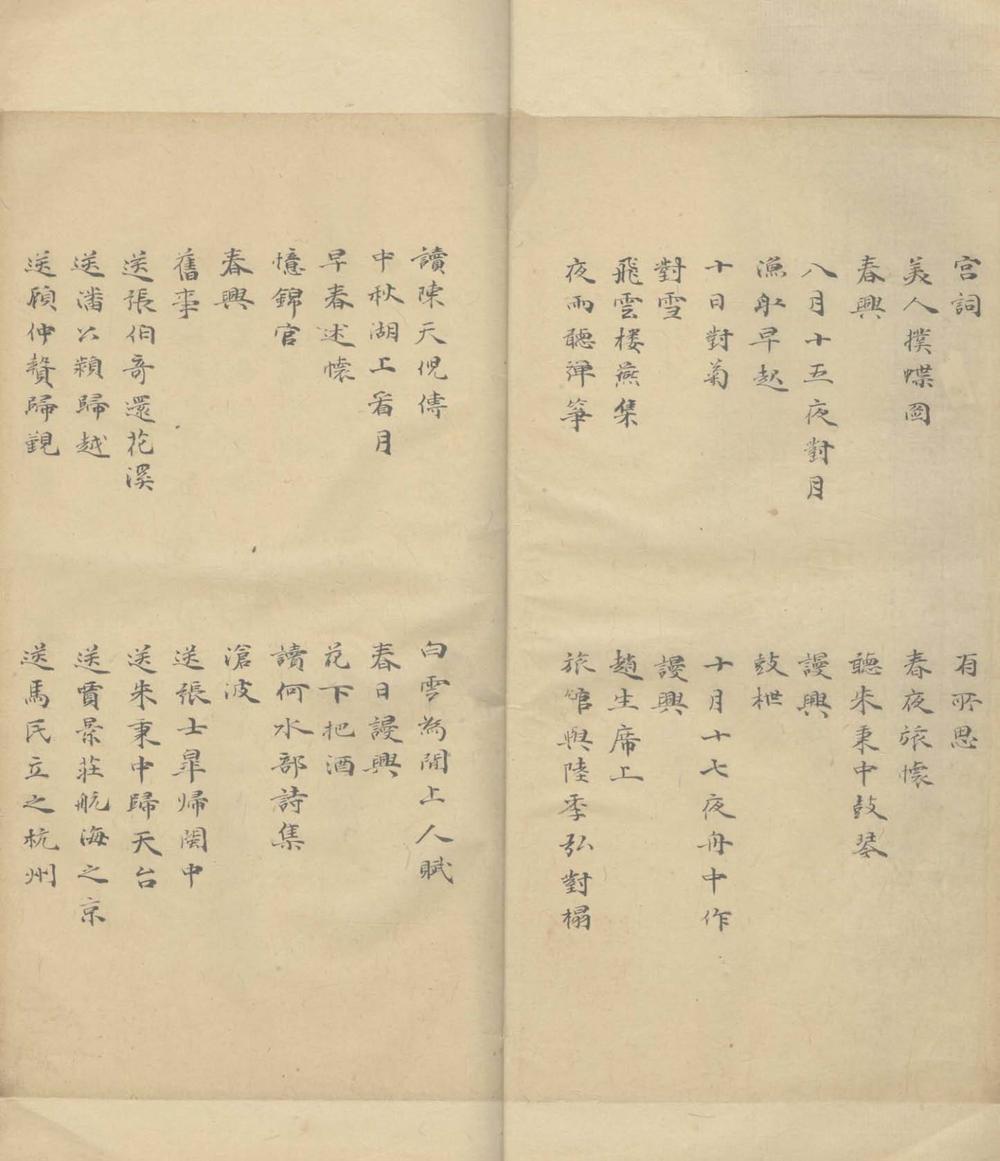 宮詞
有所思
美人撲蝶圖
春夜旅懷
春興
聽朱秉中鼓琴
八月十五夜對月
謾興
漁舟早起
鼓枻
十日對菊
十月十七夜舟中作
對雪
謾興
飛雲楼燕集
趙生席上
夜雨聽彈箏
旅館與陸季弘對榻
讀陳天倪傳
白雲為閒上人賦
中秋湖上看月
春日謾興
早春述懷
花下把酒
憶錦官
讀何水部詩集
春興
滄波
舊事
送張士皐帰閩中
送張伯奇還花溪
送朱秉中歸天台
送潘公潁歸越
送賈景莊航海之京
送顧仲贄歸覲
送馬民立之杭州